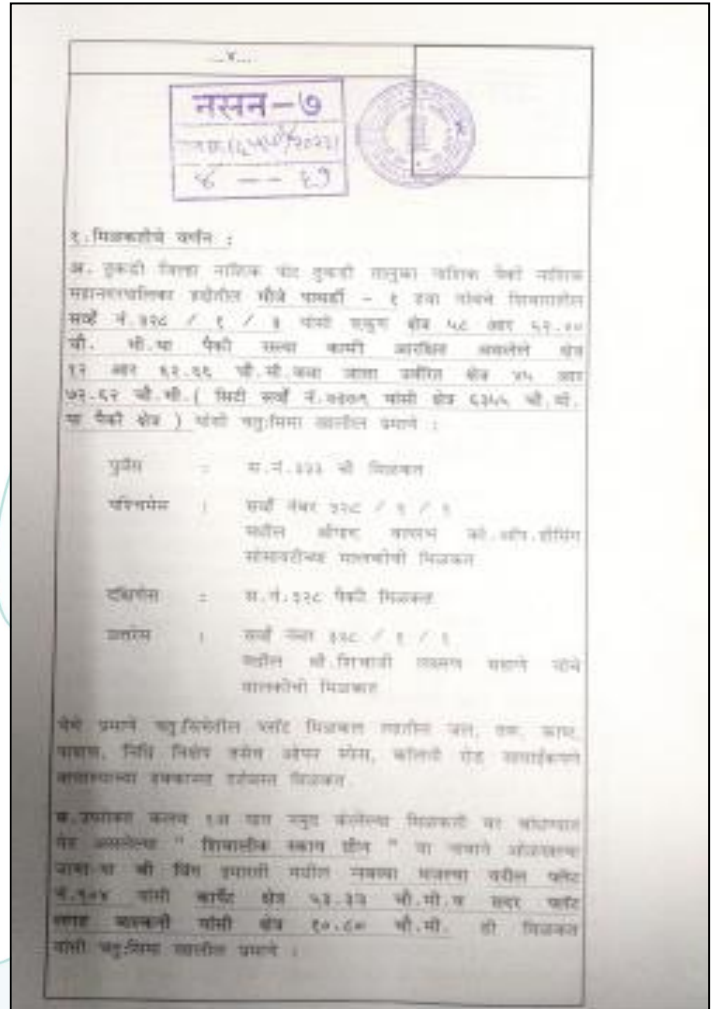 ...४...
नसन-७
४ -- ६७
१.मिळकतीचे वर्णन :
अ. तुकडी जिल्हा नाशिक पोट तुकडी तालुका नाशिक पैकी नाशिक
महानगरपालिका हद्दीतील मौजे पाथर्डी - १ ह्या गांवचे शिवारातील
सर्व्हे नं.३२८ / १ / ३ यांसी एकुण क्षेत्र ५८ आर ६२.००
चौ. मी.चा पैकी रस्त्या कामी आरक्षित असलेले क्षेत्र
१२ आर चौ.मी.वजा जाता उर्वरित क्षेत्र ४५ आर
७२.६२ चौ.मी.( सिटी सर्व्हे नं. यांसी क्षेत्र ६३५५ चौ.मी.
पैकी क्षेत्र ) यांसी चतु:सिमा खालील प्रमाणे :
पुर्वेस : स.नं.३२३ ची मिळकत
पश्चिमेस : सर्व्हे नंबर ३२८ / १ / १
मधील को.ऑप.हौसिंग
सोसायटीच्या मालकीची मिळकत
दक्षिणेस : स.नं.३२८ पैकी मिळकत
उत्तरेस : सर्व्हे नंबर ३२८ / १ / १
मधील श्री.शिवाजी लक्ष्मण यांचे
मालकीची मिळकत
येणे प्रमाणे चतु:सिमेतील प्लॉट मिळकत त्यातील जल, तरू, काष्ट,
पाषाण, निधि निक्षेप तसेच ओपन स्पेस, कॉलनी रोड
वापरण्याच्या हक्कासह दरोबस्त मिळकत.
ब.उपरोक्त कलम १अ यात नमुद केलेल्या मिळकती वर बांधण्यात
येत असलेल्या " शिवालीक स्काय ग्रीन " या नावाने ओळखल्या
जाणा-या बी विंग इमारती मधील मजल्या वरील फ्लॅट
नं.९०४ यांसी कार्पेट क्षेत्र ५३.३३ चौ.मी.व सदर फ्लॅट
लगत बाल्कनी यांसी क्षेत्र १०.८० चौ.मी. ही मिळकत
यांसी चतु:सिमा खालील प्रमाणे :